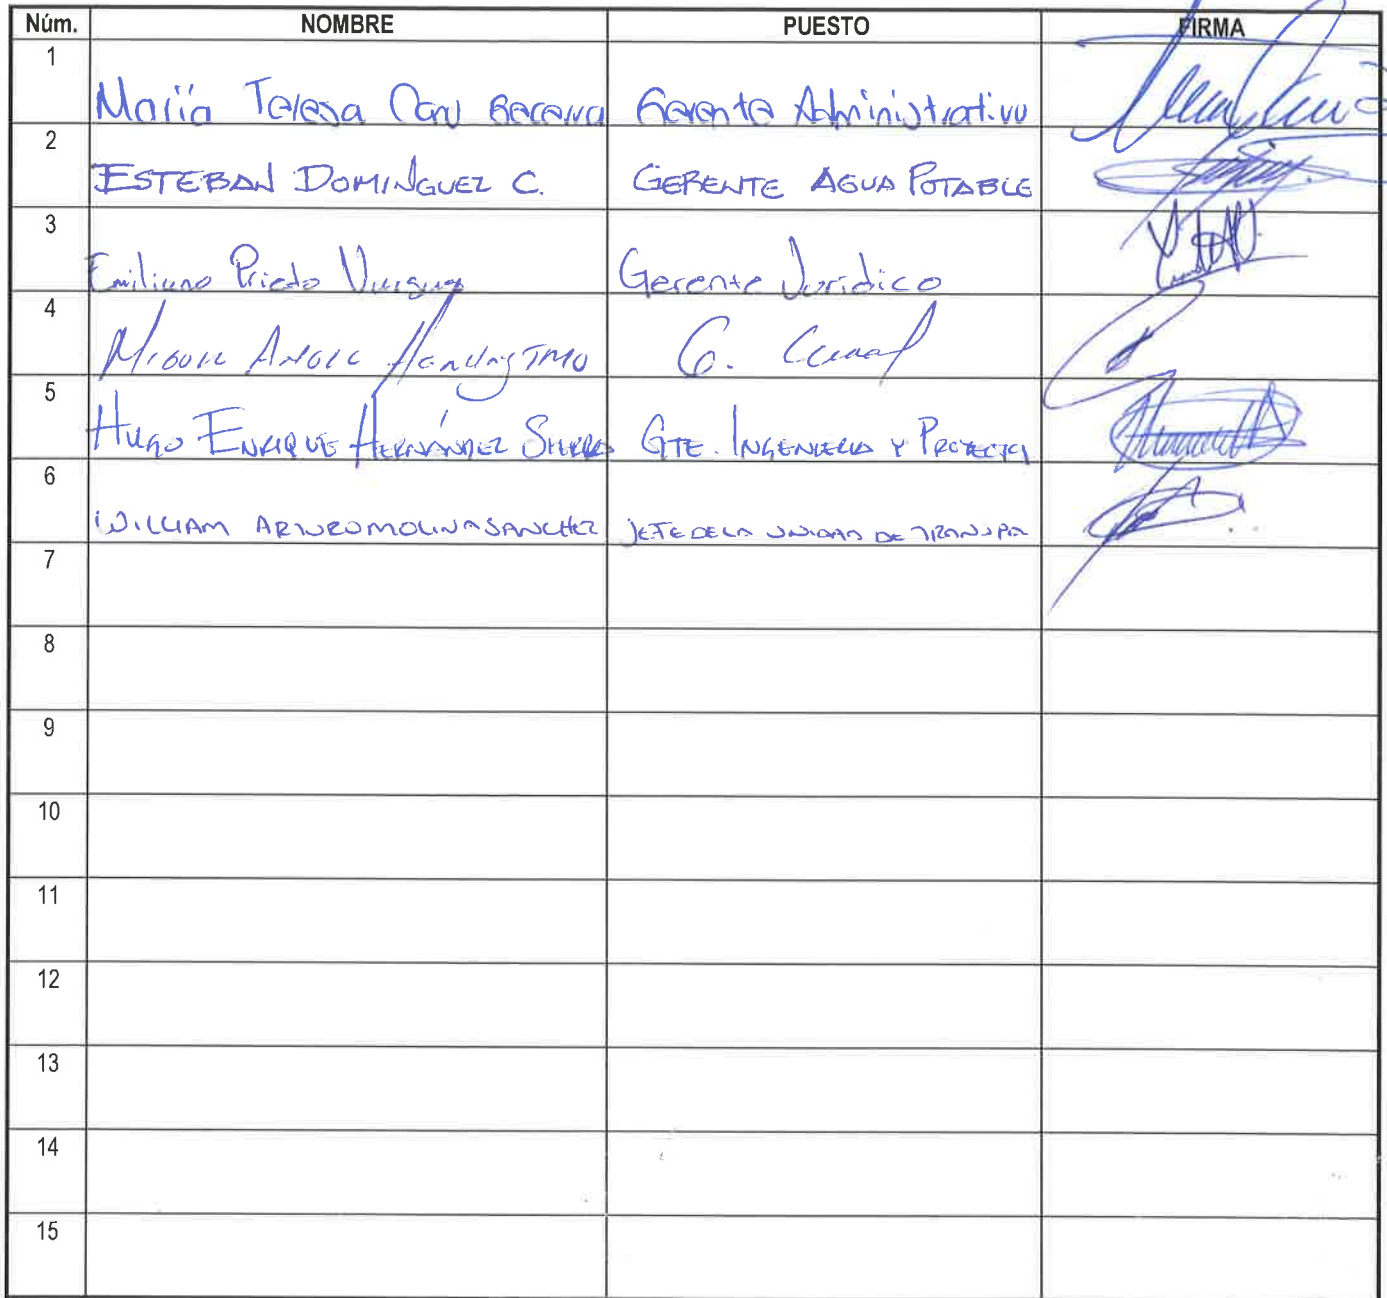 Núm. NOMBRE PUESTO FIRMA
1 María Teresa Gerente Administrativo
2 ESTEBAN DOMINGUEZ C. GERENTE AGUA POTABLE
3 Emiliano Prieto Gerente Jurídico
4 G.
5 HUGO ENRIQUE HERNÁNDEZ GTE. INGENIERIA Y PROYECTOS
6 WILLIAM ARTURO MOLINA SANCHEZ JEFE DE LA UNIDAD DE TRANSPA
7
8
9
10
11
12
13
14
15